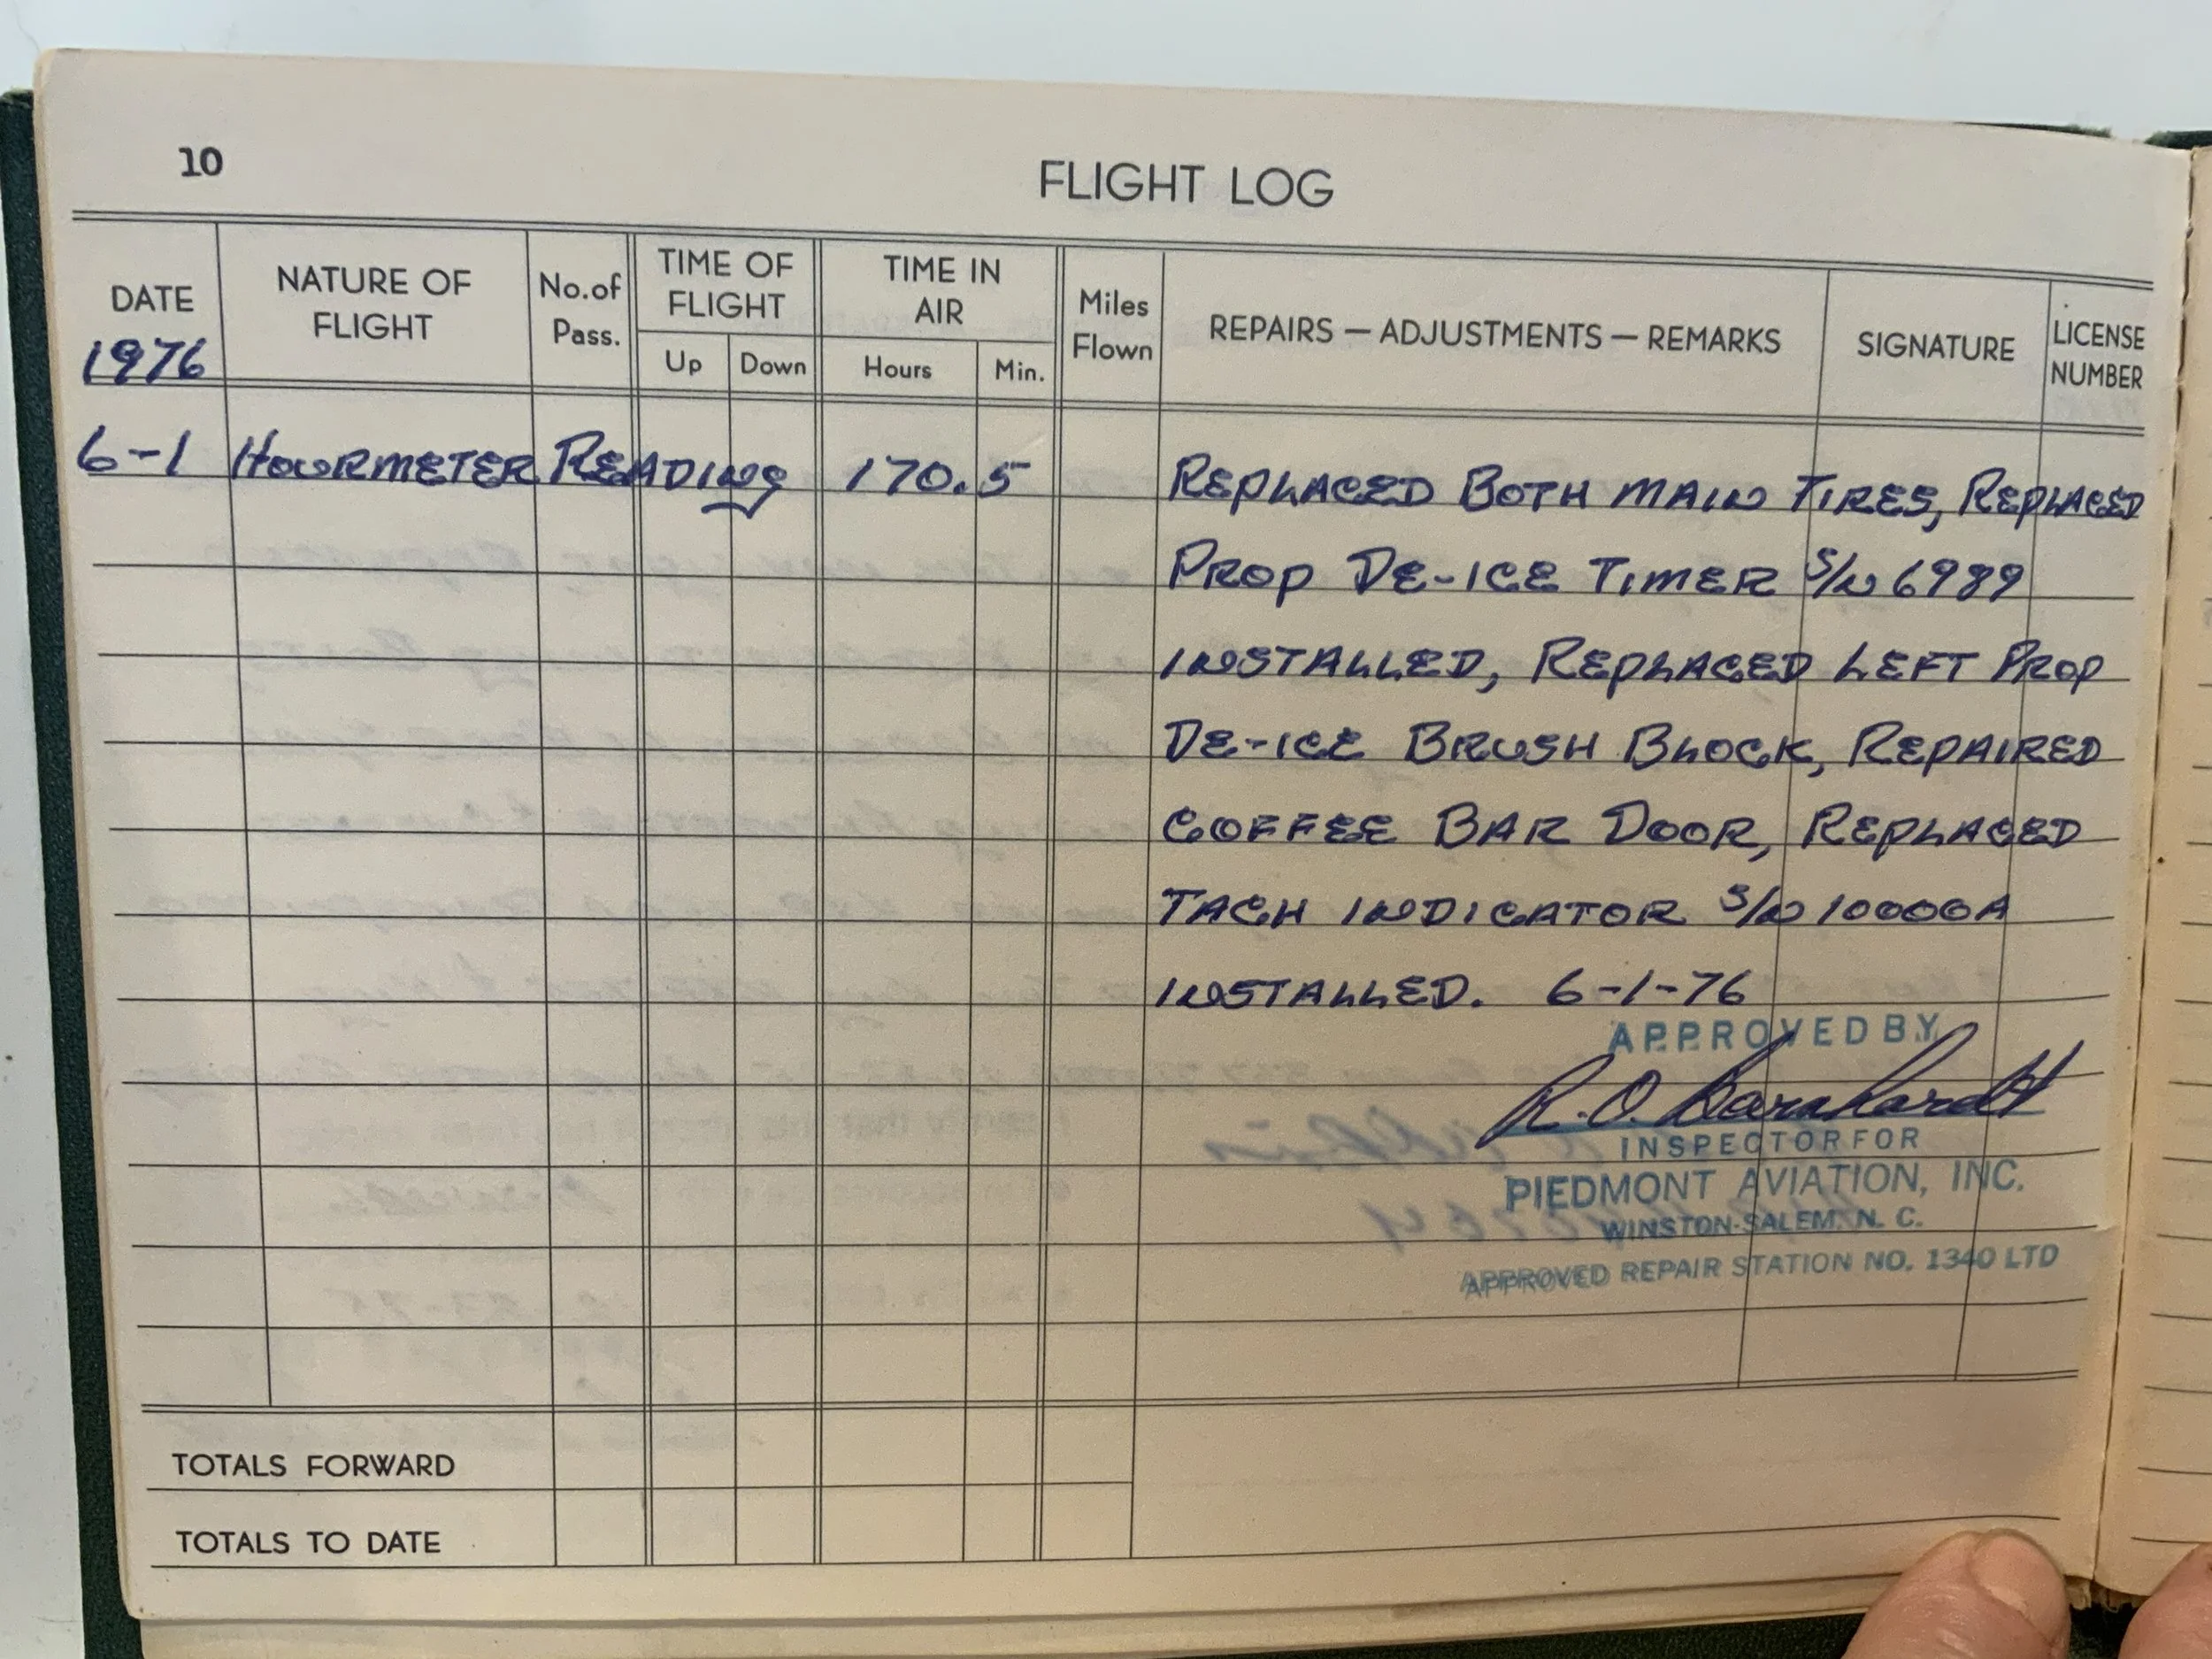 10
FLIGHT LOG
DATE
1976
NATURE OF
FLIGHT
No.of
Pass.
TIME OF
FLIGHT
Up Down
TIME IN
AIR
Hours Min.
Miles
Flown
REPAIRS — ADJUSTMENTS — REMARKS
SIGNATURE
LICENSE
NUMBER
6-1 HOURMETER READING 170.5 REPLACED BOTH MAIN TIRES, REPLACED
PROP DE-ICE TIMER S/N 6989
INSTALLED, REPLACED LEFT PROP
DE-ICE BRUSH BLOCK, REPAIRED
COFFEE BAR DOOR, REPLACED
TACH INDICATOR S/N 10000A
INSTALLED. 6-1-76
APPROVED BY
R.O. Barnhardt
INSPECTOR FOR
PIEDMONT AVIATION, INC.
WINSTON-SALEM, N. C.
APPROVED REPAIR STATION NO. 1340 LTD
TOTALS FORWARD
TOTALS TO DATE